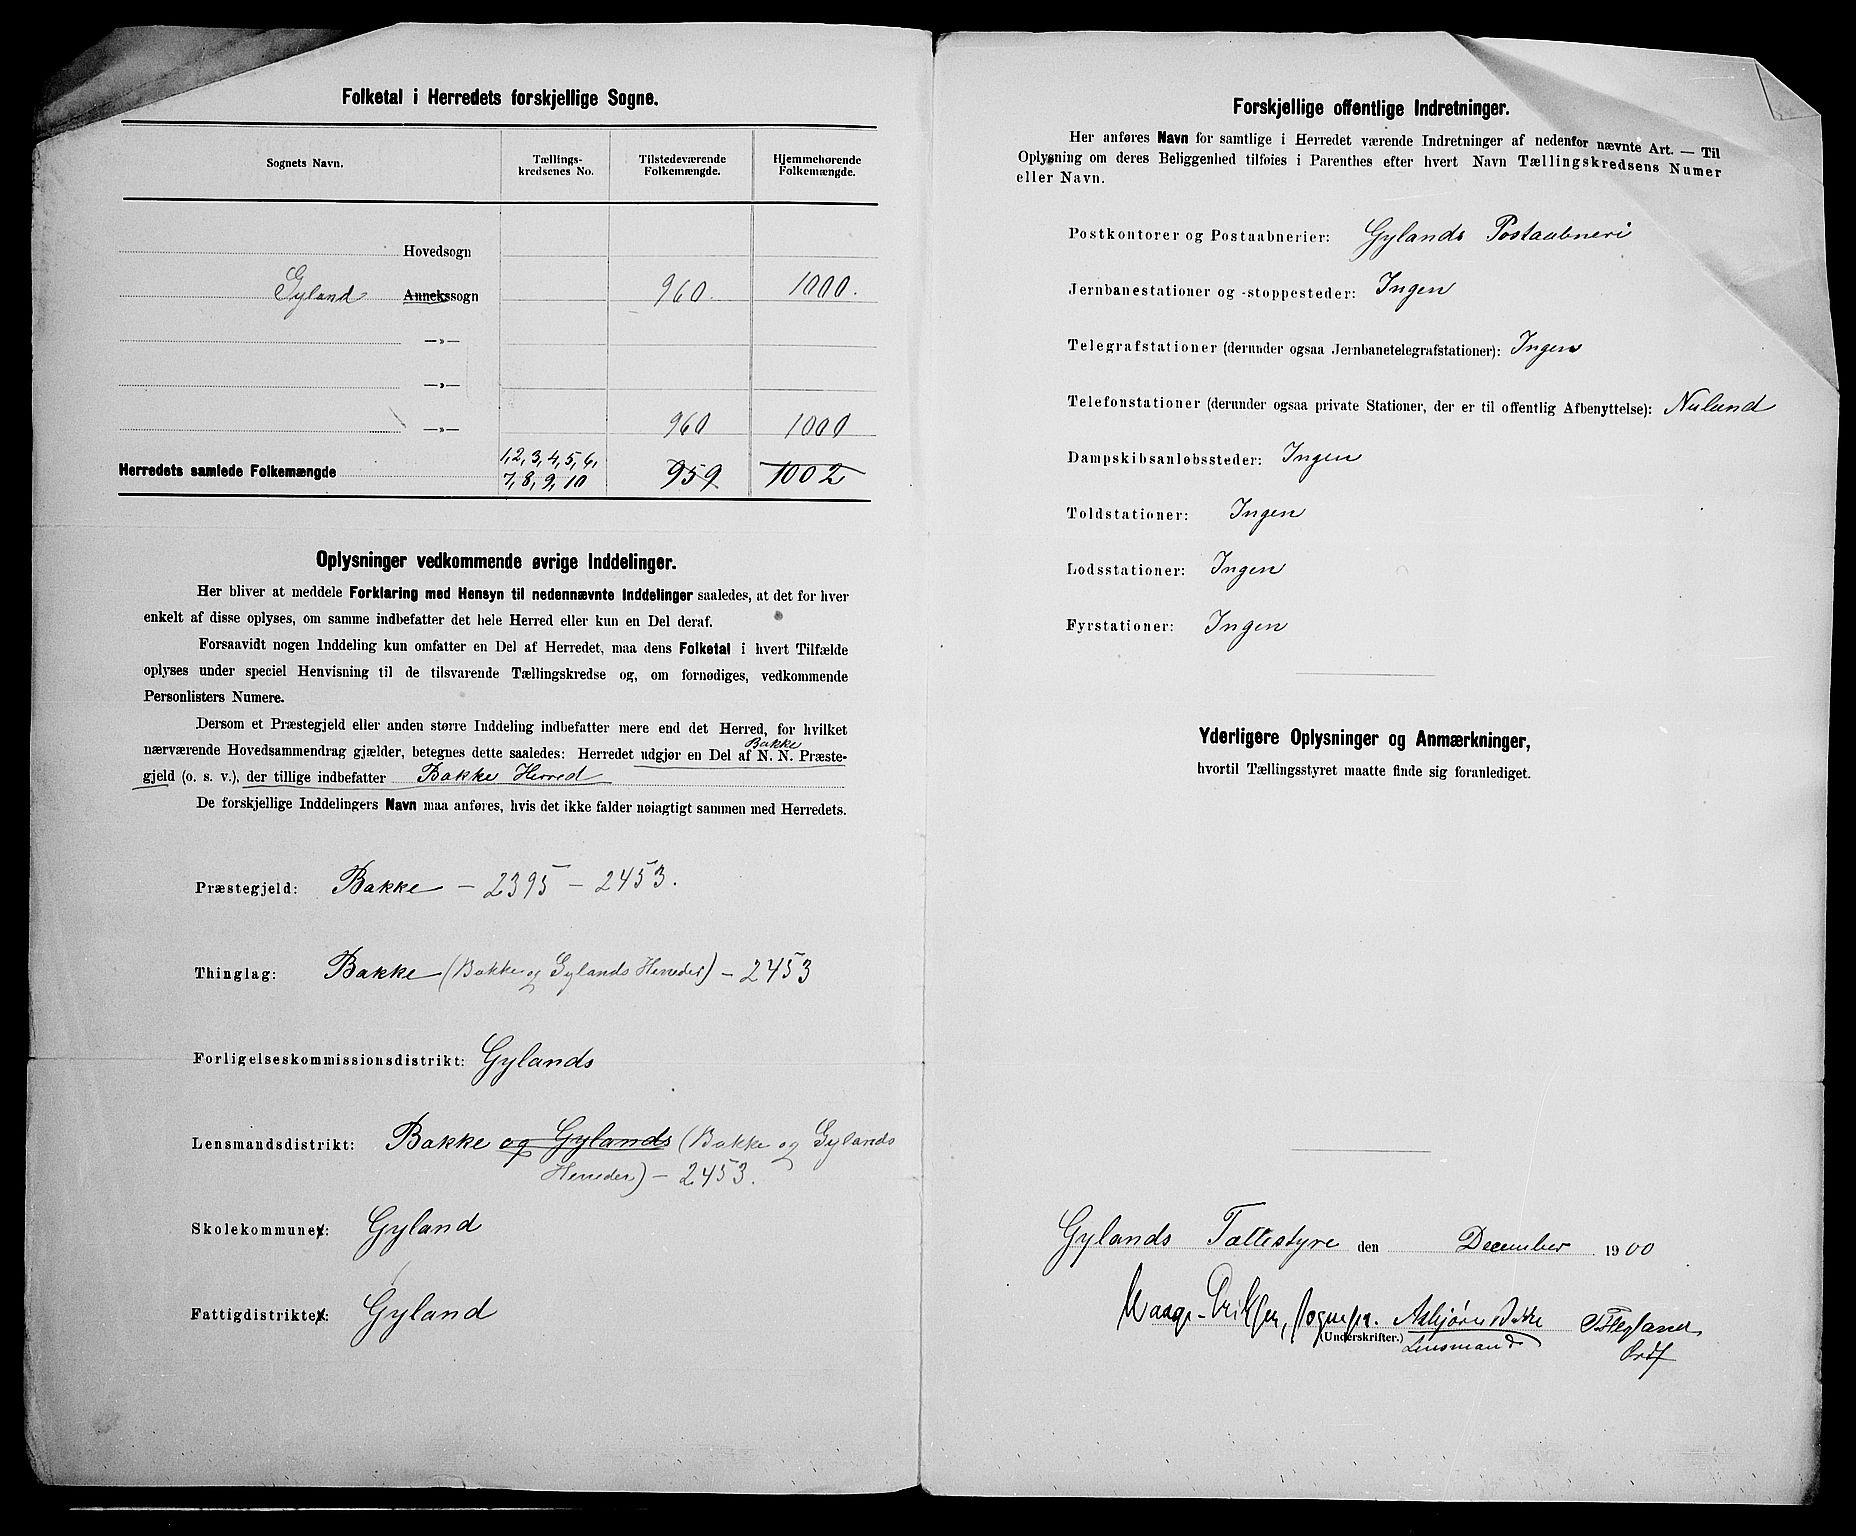 Folketal i Herredets forskjellige Sogne.
Sognets Navn.
Tællings-
kredsenes No.
Tilstedeværende
Folkemængde.
Hjemmehørende
Folkemængde.
Hovedsogn
Gyland Annekssogn 960. 1000.
—»—
—»—
—»— 960 1000
Herredets samlede Folkemængde 1,2,3,4,5,6,
7,8,9,10 959 1002
Oplysninger vedkommende øvrige Inddelinger.
Her bliver at meddele Forklaring med Hensyn til nedennævnte Inddelinger saaledes, at det for hver
enkelt af disse oplyses, om samme indbefatter det hele Herred eller kun en Del deraf.
Forsaavidt nogen Inddeling kun omfatter en Del af Herredet, maa dens Folketal i hvert Tilfælde
oplyses under speciel Henvisning til de tilsvarende Tællingskredse og, om fornødiges, vedkommende
Personlisters Numere.
Dersom et Præstegjeld eller anden større Inddeling indbefatter mere end det Herred, for hvilket
nærværende Hovedsammendrag gjælder, betegnes dette saaledes: Herredet udgjør en Del af N. N. Præste-
Bakke
gjeld (o. s. v.), der tillige indbefatter Bakke Herred
De forskjellige Inddelingers Navn maa anføres, hvis det ikke falder nøiagtigt sammen med Herredets.
Præstegjeld: Bakke – 2395 – 2453.
Thinglag: Bakke (Bakke og Gylands Herreder) – 2453
Forligelseskommissionsdistrikt: Gylands
Lensmandsdistrikt: Bakke og Gylands (Bakke og Gylands
Herreder) – 2453.
Skolekommuner: Gyland
Fattigdistrikter: Gyland
Forskjellige offentlige Indretninger.
Her anføres Navn for samtlige i Herredet værende Indretninger af nedenfor nævnte Art. — Til
Oplysning om deres Beliggenhed tilføies i Parenthes efter hvert Navn Tællingskredsens Numer
eller Navn.
Postkontorer og Postaabnerier: Gylands Postaabneri
Jernbanestationer og -stoppesteder: Ingen
Telegrafstationer (derunder ogsaa Jernbanetelegrafstationer): Ingen
Telefonstationer (derunder ogsaa private Stationer, der er til offentlig Afbenyttelse): Nuland
Dampskibsanløbssteder: Ingen
Toldstationer: Ingen
Lodsstationer: Ingen
Fyrstationer: Ingen
Yderligere Oplysninger og Anmærkninger,
hvortil Tællingsstyret maatte finde sig foranlediget.
Gylands Tællestyre den December 1900
Eriksen, sognepr. Asbjørn Bakke
(Underskrifter.)
Lensmand
Ordf